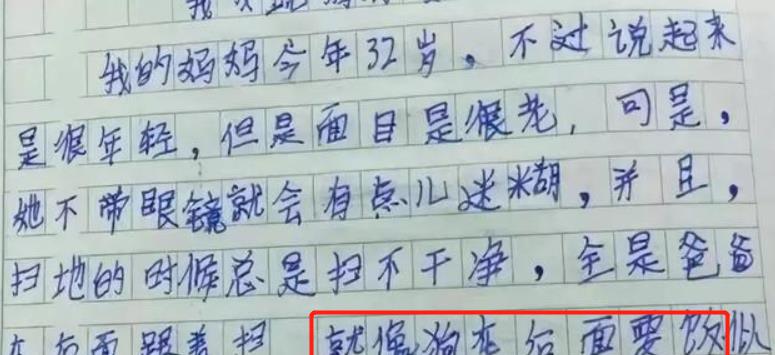 我的妈妈今年32岁，不过说起来
是很年轻，但是面目是很老，可是，
她不带眼镜就会有点儿迷糊，并且，
扫地的时候总是扫不干净，全是爸爸
在后面跟着扫 就像狗在后面要饭似